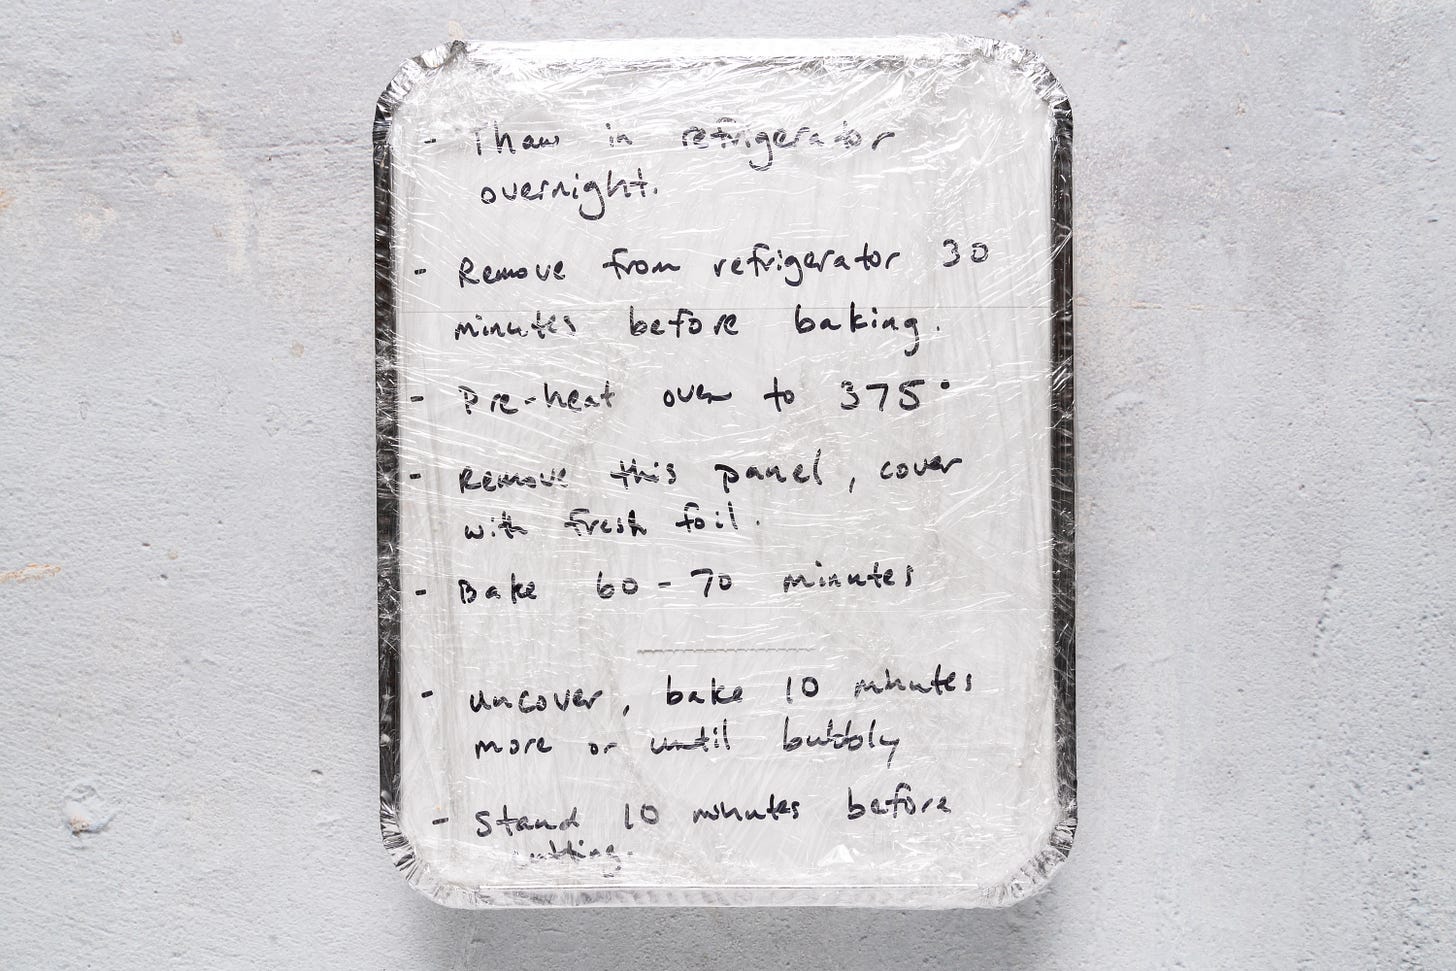 - Thaw in refrigerator
overnight.
- Remove from refrigerator 30
minutes before baking.
- Pre-heat oven to 375°
- Remove this panel, cover
with fresh foil.
- Bake 60-70 minutes
- uncover, bake 10 minutes
more or until bubbly
- Stand 10 minutes before
cutting.